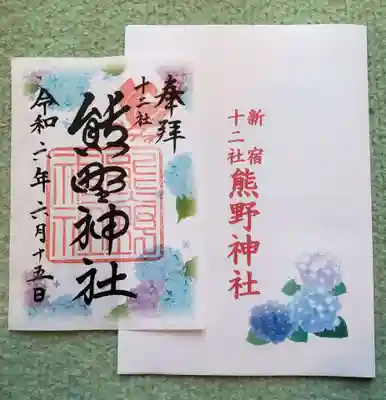 奉拝
十二社
熊野神社
令和六年六月十五日
新宿
十二社
熊野神社